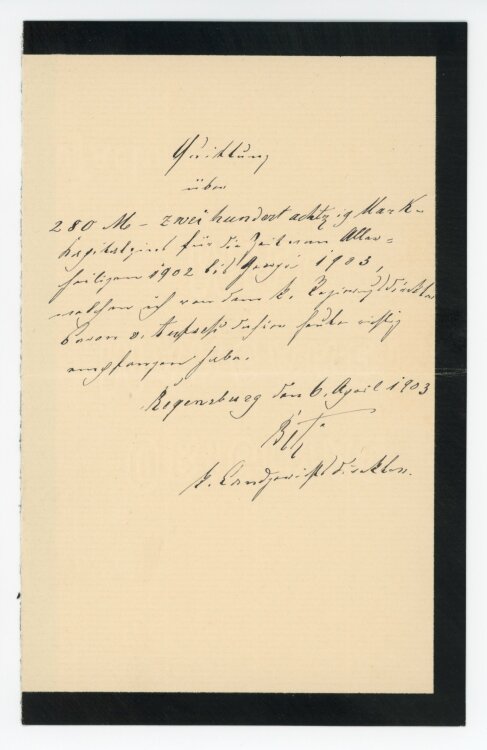 Quittung
über
280 M – zwei hundert achtzig Mark
Kapitalzins für die Zeit von Aller=
heiligen 1902 bis Georgi 1903,
welchen ich von dem k. Regierungsdirektor
Baron v. dahier heute richtig
empfangen habe.
Regensburg den 6. April 1903
k. Landgerichtsdirektor.